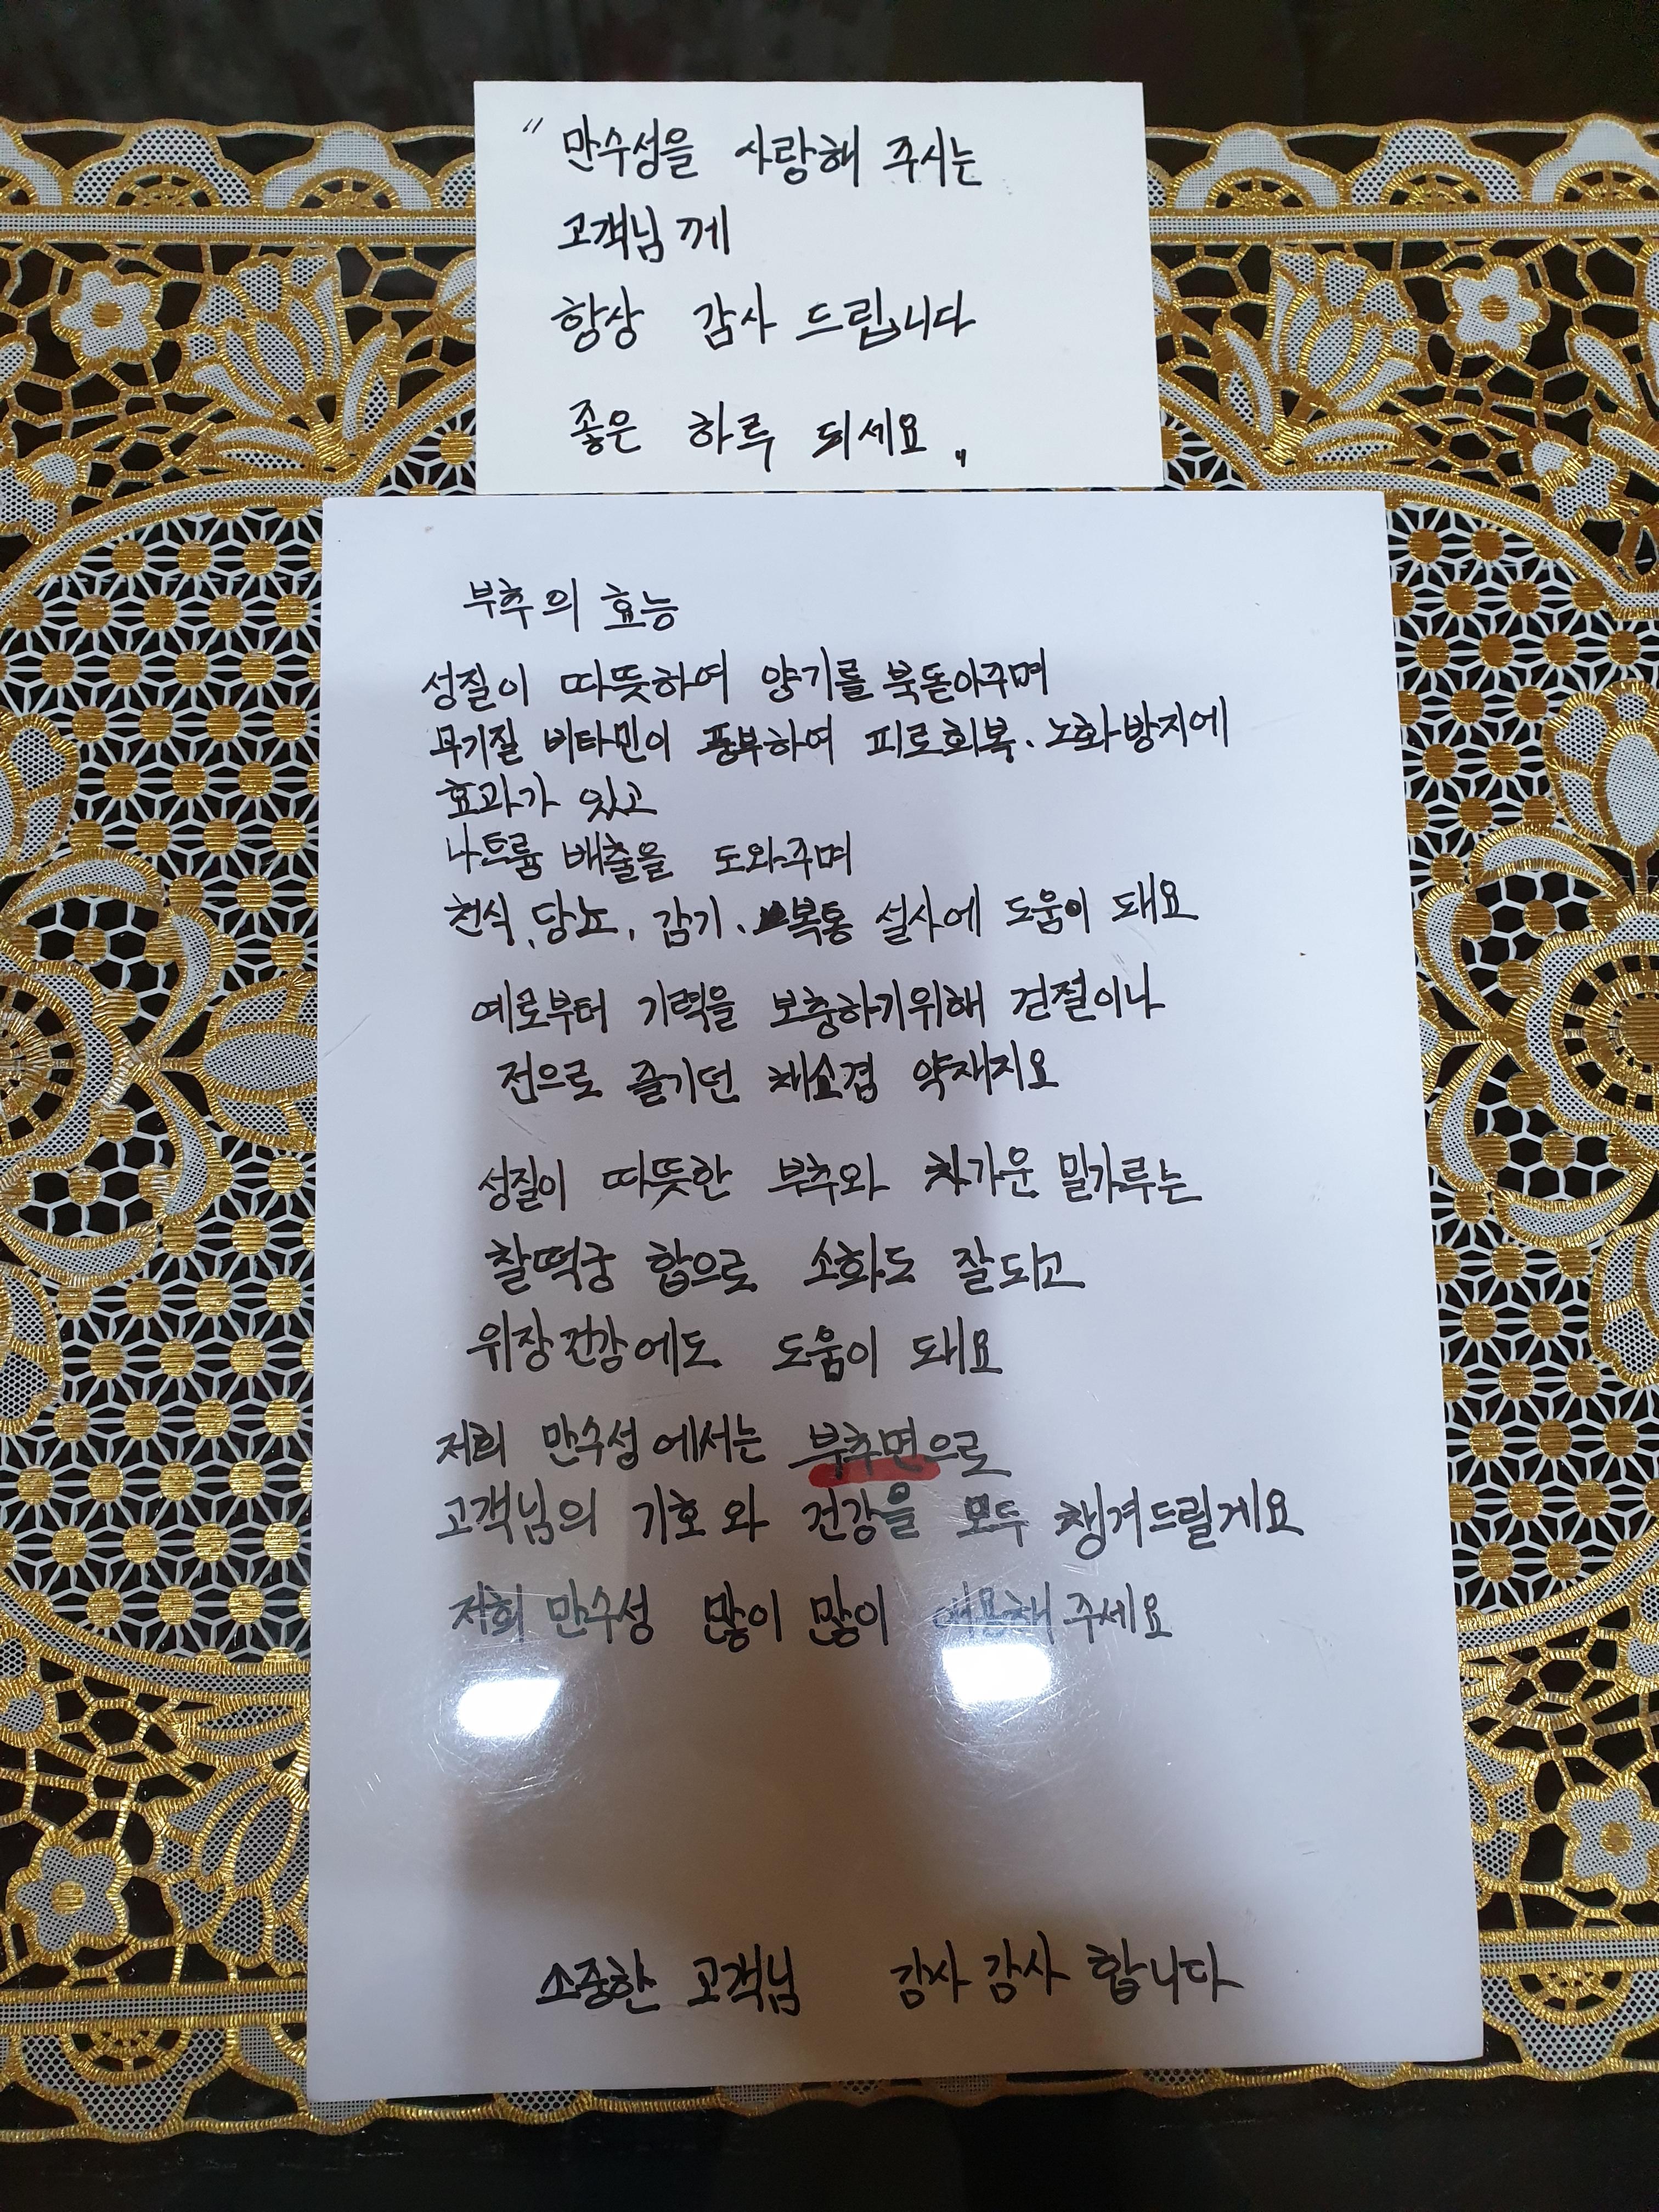 "만수성을 사랑해 주시는
고객님께
항상 감사 드립니다
좋은 하루 되세요."
부추의 효능
성질이 따뜻하여 양기를 북돋아주며
무기질 비타민이 풍부하여 피로회복. 노화방지에
효과가 있고
나트륨 배출을 도와주며
천식, 당뇨, 감기, 복통 설사에 도움이 돼요
예로부터 기력을 보충하기위해 겉절이나
전으로 즐기던 채소겸 약재지요
성질이 따뜻한 부추와 차가운 밀가루는
찰떡궁 합으로 소화도 잘되고
위장건강에도 도움이 돼요
저희 만수성에서는 부추면으로
고객님의 기호와 건강을 모두 챙겨드릴게요
저희 만수성 많이 많이 애용해 주세요
소중한 고객님 감사 감사 합니다